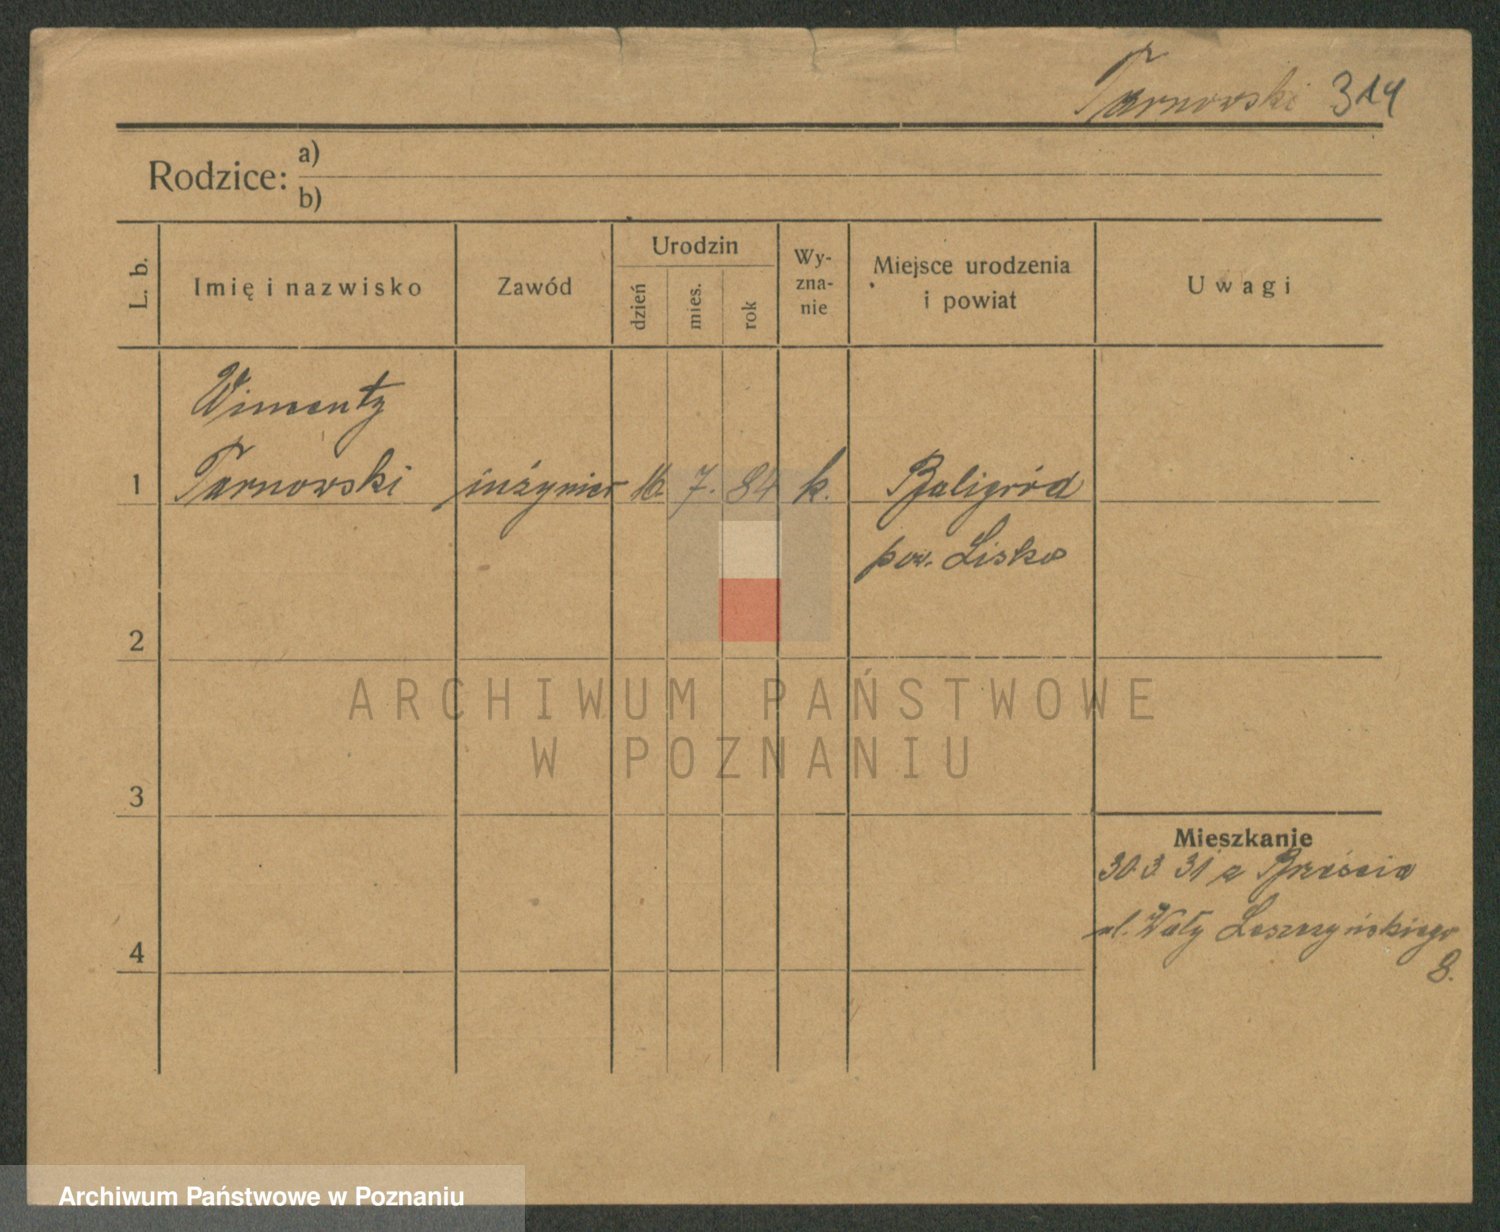 Tarnowski 314
Rodzice: a)
b)
L. b.
Imię i nazwisko
Zawód
Urodzin
dzień
mies.
rok
Wy-
zna-
nie
Miejsce urodzenia
i powiat
Uwagi
Wincenty
1 Tarnowski inżynier 16. 7. 84 k. Baligród
pow. Lisko
2
3
Mieszkanie
30 3 31 z Brześcia
ul. Wały Leszczyńskiego
4
8.
ARCHIWUM PAŃSTWOWE
W POZNANIU
Archiwum Państwowe w Poznaniu